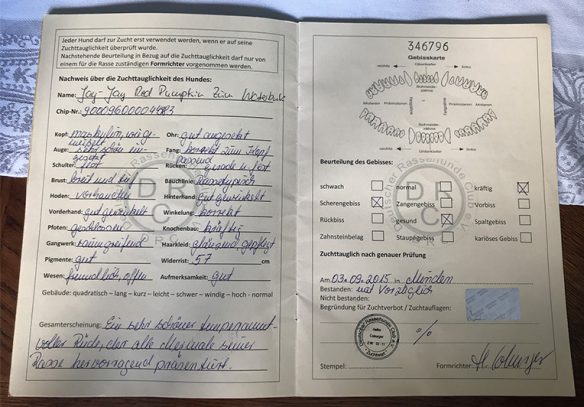 Jeder Hund darf zur Zucht erst verwendet werden, wenn er auf seine
Zuchttauglichkeit überprüft wurde.
Nachstehende Beurteilung in Bezug auf die Zuchttauglichkeit darf nur von
einem für die Rasse zuständigen Formrichter vorgenommen werden.
Nachweis über die Zuchttauglichkeit des Hundes:
Name: Jay-Jay Red Pumpkin zum
Chip-Nr.:
Kopf: maskulin, gut Ohr: gut angesetzt
Auge: sehr schön Fang: korrekt zum Kopf passend
Schulter: fest Rücken: gerade u. fest
Brust: breit und tief Bauchlinie: rassetypisch
Hoden: vorhanden Hinterhand: gut gewinkelt
Vorderhand: gut gewinkelt Winkelung: korrekt
Pfoten: geschlossen Knochenbau: kräftig
Gangwerk: raumgreifend Haarkleid: glänzend gepflegt
Pigmente: gut Widerrist: 57 cm
Wesen: freundlich, offen Aufmerksamkeit: gut
Gebäude: quadratisch – lang – kurz – leicht – schwer – windig – hoch – normal
Gesamterscheinung: Ein sehr schöner temperament-
voller Rüde, der alle Merkmale seiner
Rasse hervorragend präsentiert.
346796
Gebisskarte
Oberkiefer
Molaren Prämolaren Prämolaren Molaren
Unterkiefer
Beurteilung des Gebisses:
schwach normal kräftig
Scherengebiss Zangengebiss Vorbiss
Rückbiss gesund Spaltgebiss
Zahnsteinbelag Staupegebiss kariöses Gebiss
Zuchttauglich nach genauer Prüfung
Am 03.09.2015 in München
Bestanden: mit Vorzüglich
Nicht bestanden:
Begründung für Zuchtverbot / Zuchtauflagen:
%
Stempel: Formrichter:
Deutscher Rassehunde Club e.V.
DRC